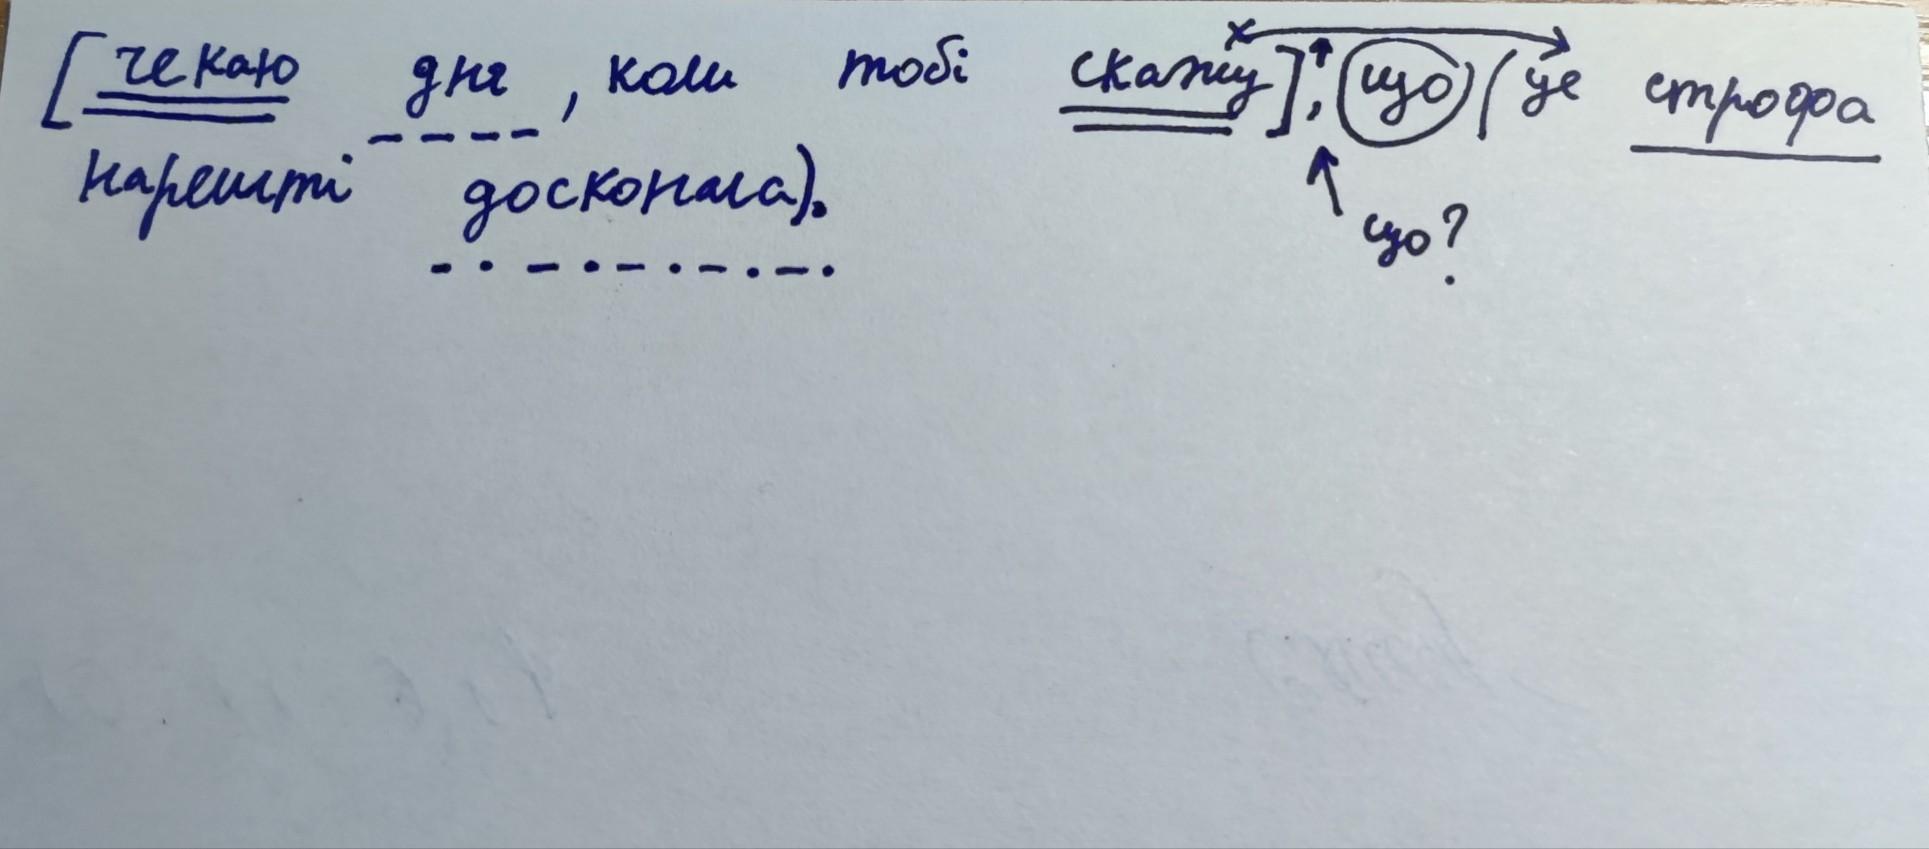 [чекаю дня, коли тобі скажу], що (це строфа
нарешті досконала).
що?